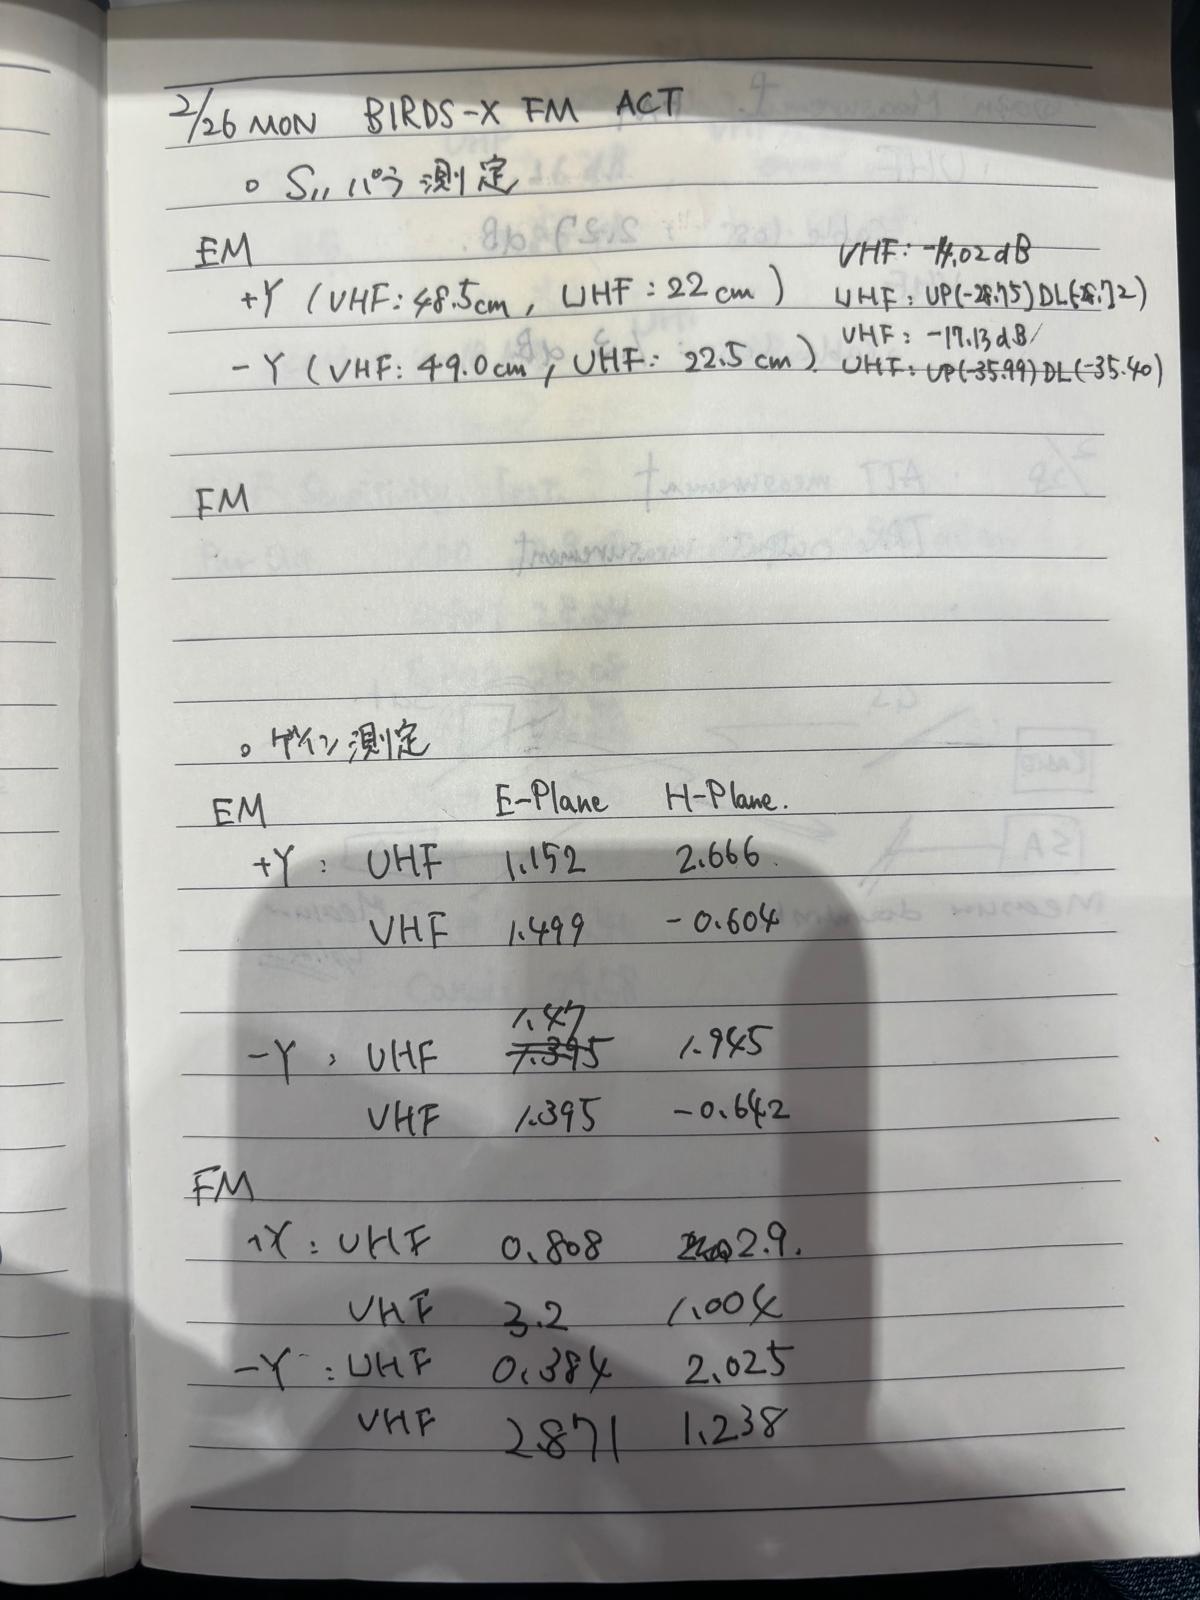 2/26 MON BIRDS-X FM ACT
○ S11 パラ測定
EM
+Y (VHF: 48.5cm, UHF: 22cm) VHF: -14.02dB
UHF: UP(-28.75) DL(-28.72)
-Y (VHF: 49.0cm, UHF: 22.5cm) VHF: -17.13dB/
UHF: UP(-35.99) DL(-35.40)
FM
○ ゲイン測定
EM E-Plane H-Plane.
+Y: UHF 1.152 2.666
VHF 1.499 -0.604
1.47
-Y: UHF 1.395 1.945
VHF 1.395 -0.642
FM
+Y: UHF 0.808 2.9.
VHF 3.2 1.004
-Y: UHF 0.384 2.025
VHF 2.871 1.238